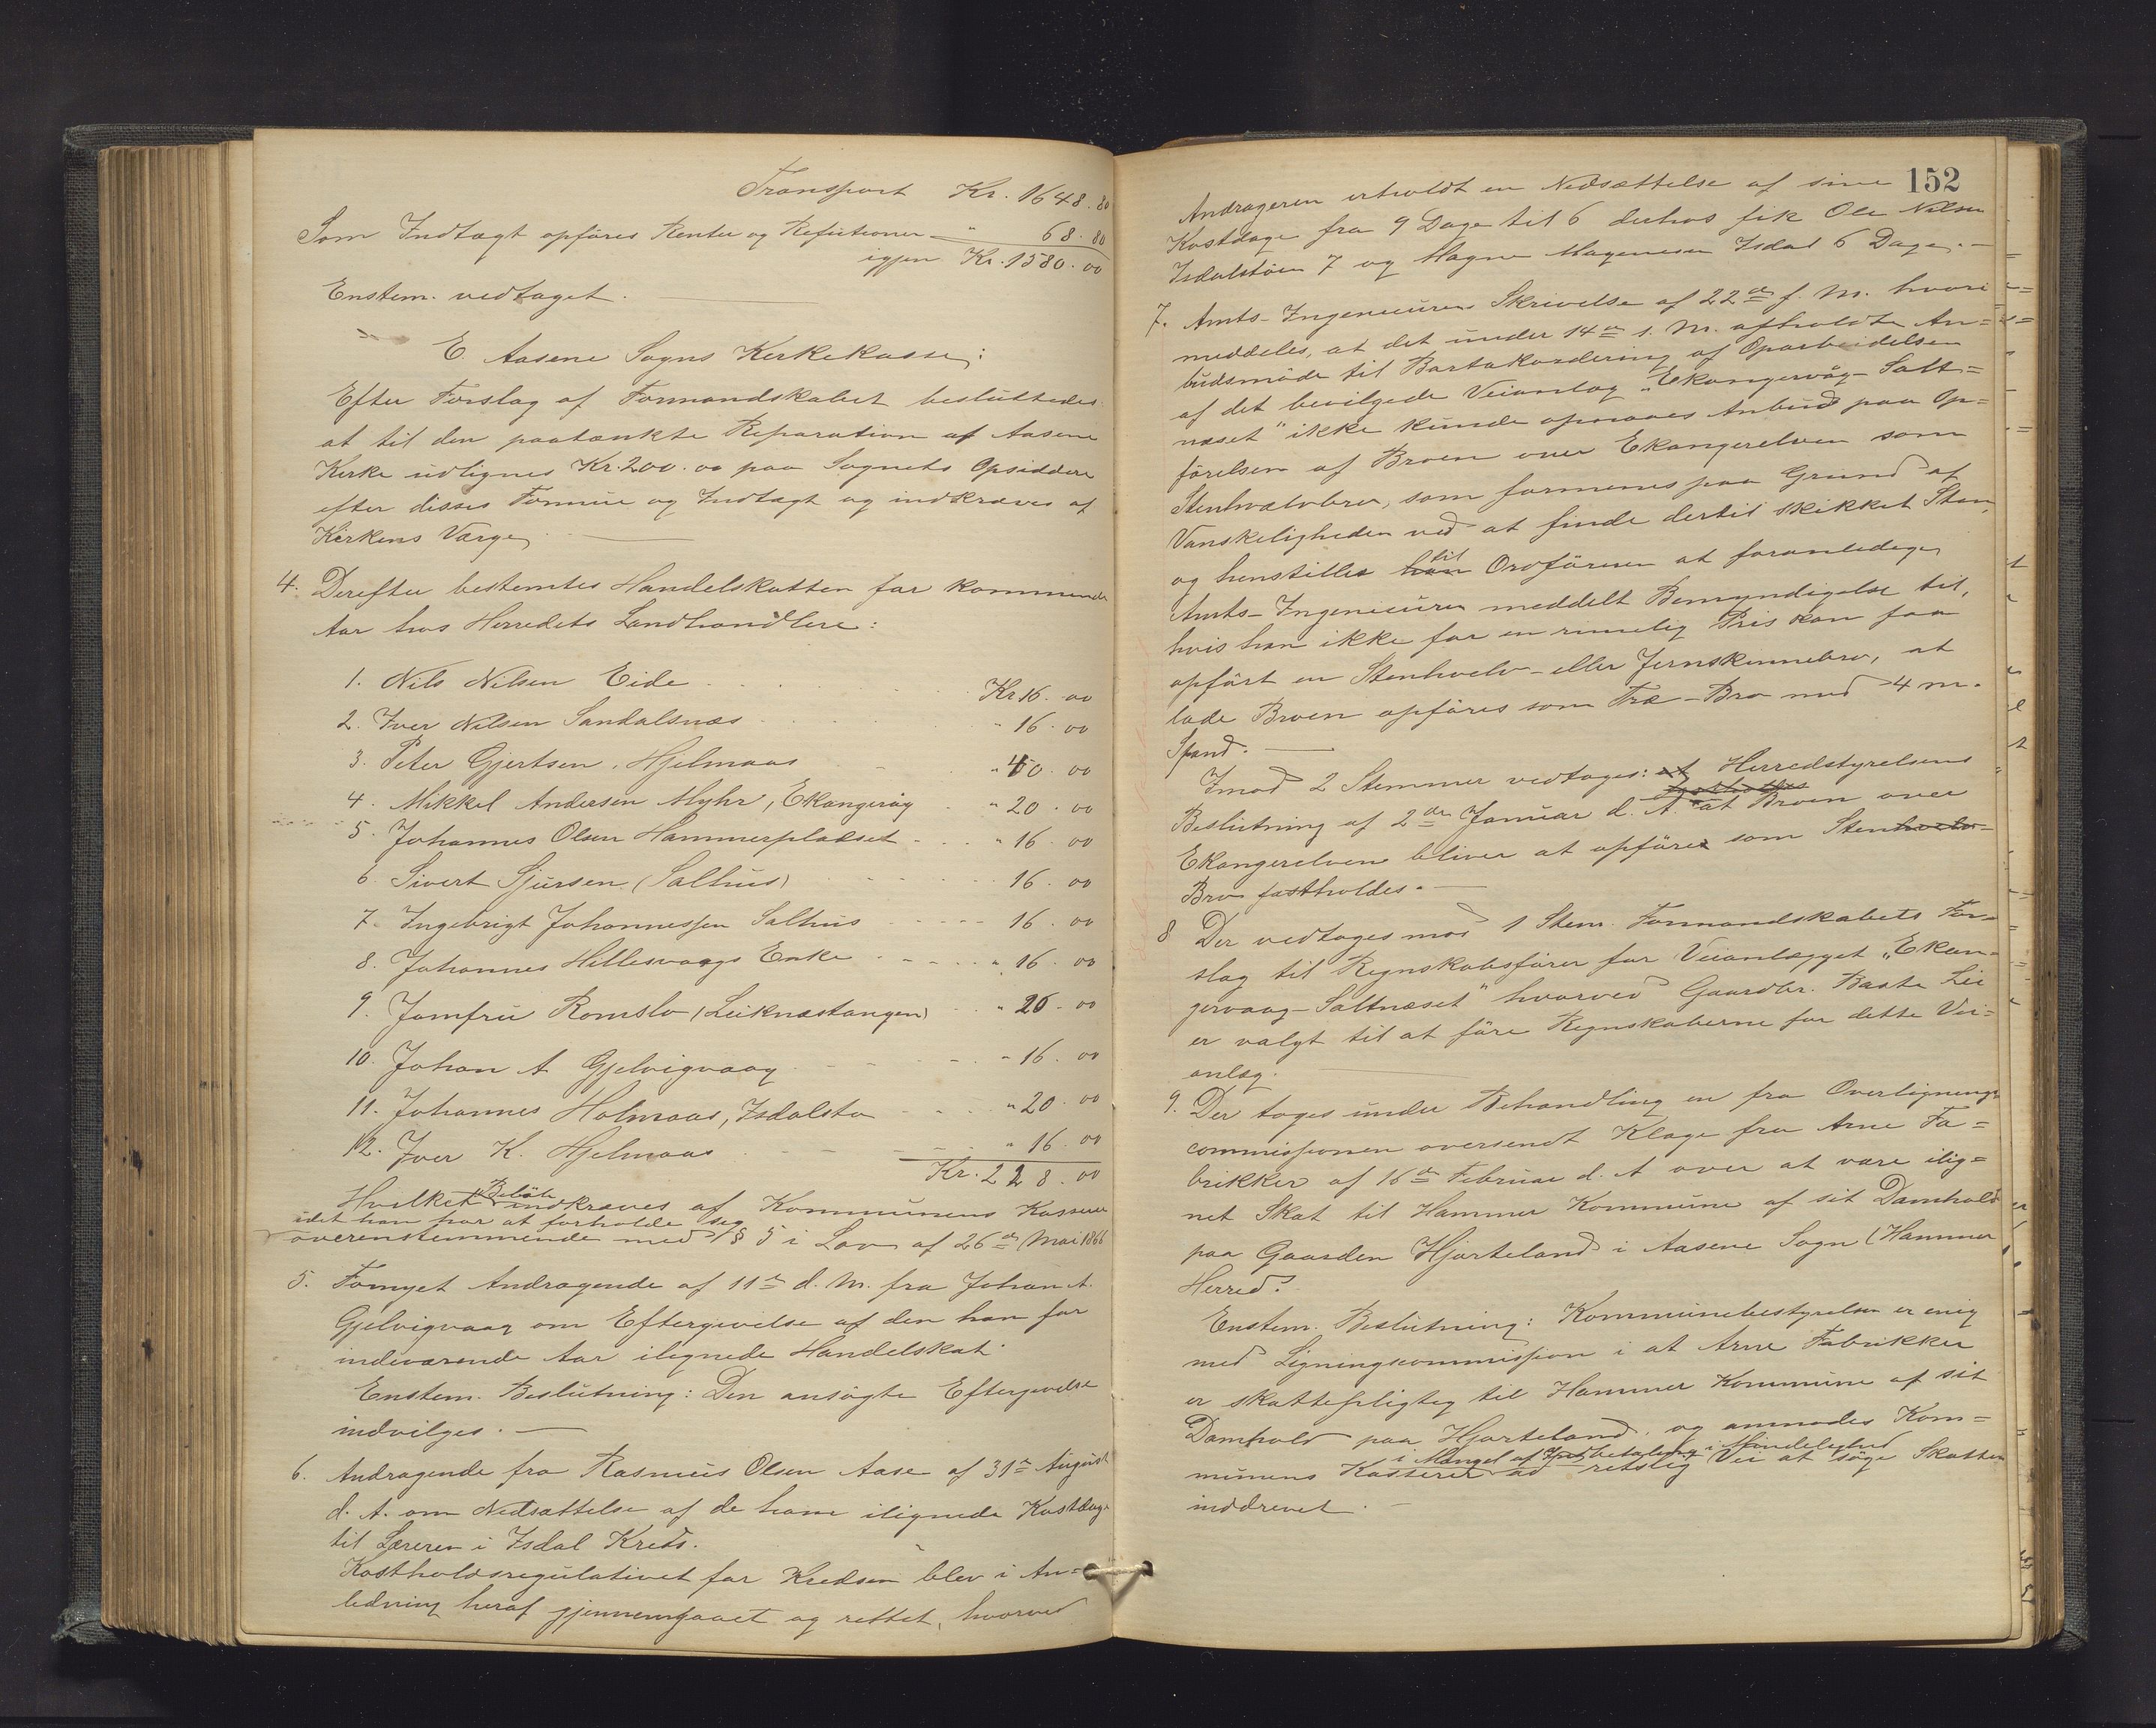 Transport Kr. 1648.80
Som Indtægt opføres Renter og Refusioner — " 68.80
igjen Kr. 1580.00
Enstem. vedtaget.
E. Aasene Sogns Kirkekasse:
Efter Forslag af Formandskabet besluttedes
at til den paatænkte Reparation af Aasene
Kirke udlignes Kr. 200.00 paa Sognets Opsiddere
efter disses Formue og Indtægt og indkræves af
Kirkens Værge.
4. Derefter bestemtes Handelskatten for kommende
Aar hos Herredets Landhandlere:
1. Nils Nilsen Eide Kr 16.00
2. Iver Nilsen Sandalsnæs " 16.00
3. Peter Gjertsen, Hjelmaas " 40.00
4. Mikkel Andersen Myhr, Ekangervåg " 20.00
5. Johannes Olsen Hammerpladset " 16.00
6. Sivert Sjursen (Salhus) 16.00
7. Ingebrigt Johannessen Salhus 16.00
8. Johannes Hillesvaags Enke " 16.00
9. Jomfru Romslo (Leiknestangen) " 20.00
10. Johan A Gjelvigvaag " 16.00
11. Johannes Holmaas, Isdalstø " 20.00
12. Iver K. Hjelmaas " 16.00
Kr. 228.00
Hvilket Beløb indkræves af Kommunens Kasserer
idet han har at forholde sig
overensstemmende med § 5 i Lov af 26de Mai 1866
5. Fornyet Andragende af 11te d. M. fra Johan A.
Gjelvigvaag om Eftergivelse af den ham for
indeværende Aar ilignede Handelskat.
Enstem. Beslutning: Den ansøgte Eftergivelse
indvilges.
6. Andragende fra Rasmus Olsen Aase af 31te August
d. A. om Nedsættelse af de ham ilignede Kostdage
til Læreren i Isdal Kreds.
Kostholdsregulativet for Kredsen blev i An=
ledning heraf gjennemgaaet og rettet, hvorved
152
Andrageren erholdt en Nedsættelse af sine
Kostdage fra 9 Dage til 6 derhos fik Ole Nilsen
Isdalstøen 7 og Magne Magnesen Isdal 6 Dage.
7. Amts-Ingeniørens Skrivelse af 22de f. M. hvori
meddeles, at det under 14de s. M. afholdte An=
budsmøde til Bortakordering af Oparbeidelsen
af det bevilgede Veianlæg "Ekangervåg-Salt=
næset" ikke kunde opnaaes Anbud paa Op=
førelsen af Broen over Ekangerelven som
Stenhvælvbro, som formenes paa Grund af
Vanskeligheden ved at finde dertil skikket Sten,
og henstilles han til Ordføreren at foranledige
Amts-Ingeniøren meddelt Bemyndigelse til,
hvis han ikke for en rimelig Pris kan faa
opført en Stenhvelv- eller Jernskinnebro, at
lade Broen opføres som Træ-Bro med 4 m.
Spand.
Imod 2 Stemmer vedtages: at Herredstyrelsens
fastholdes
Beslutning af 2den Januar d. A. at Broen over
Ekangerelven bliver at opføre som Stenhvelv-
Bro fastholdes.
8 Der vedtages mod 1 Stem. Formandskabets For=
slag til Regnskabsfører for Veianlægget "Ekan=
gervaag-Saltnæset" hvorved Gaardbr. Baste Lie
er valgt til at føre Regnskaberne for dette Vei=
anlæg.
9. Der toges under Behandling en fra Overlignings
commissionen oversendt Klage fra Arne Fa=
brikker af 16de Februar d. A over at være ilig=
net Skat til Hammer Kommune af sit Damhold
paa Gaarden Hjorteland i Aasene Sogn (Hammer
Herred.
Enstem. Beslutning: Kommunebestyrelsen er enig
med Ligningscommission i at Arne Fabrikker
er skattepligtig til Hammer Kommune af sit
Damhold paa Hjorteland, og anmodes Kom=
i Mangel af Indbetaling i Mindelighed
munens Kasserer ad retslig Vei at søge Skatten
inddrevet.